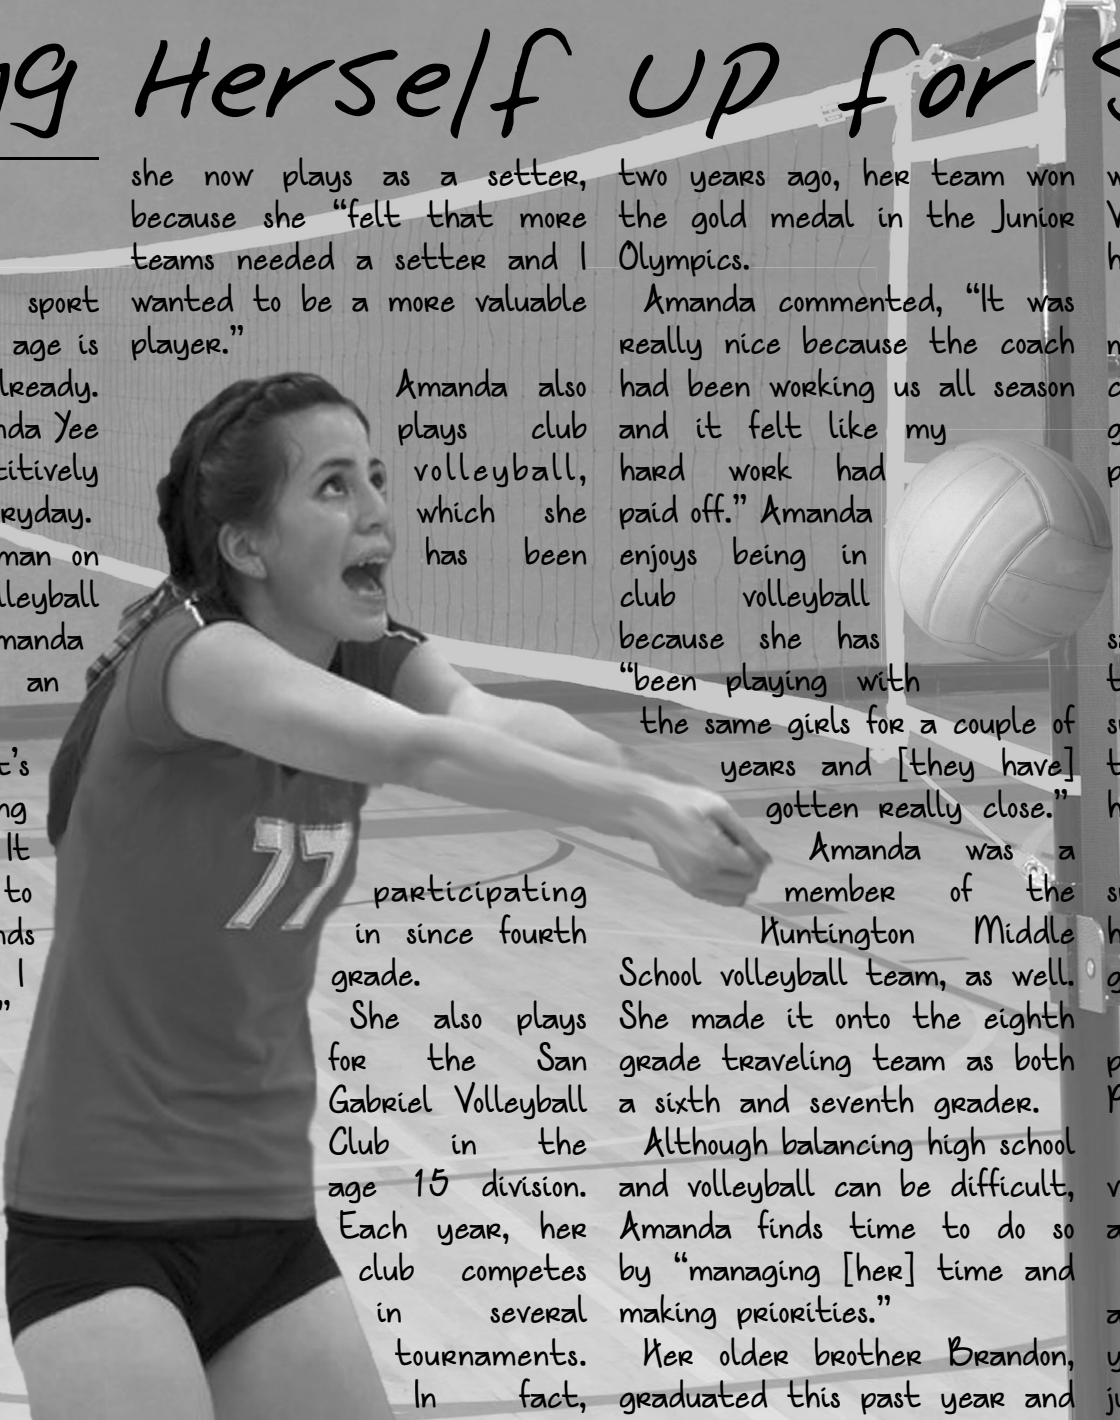 Herself Up for
sport
age is
nda Yee
man on
an
It
to
I
she now plays as a setter,
because she “felt that more
teams needed a setter and I
wanted to be a more valuable
player.”
Amanda also
plays club
volleyball,
which she
has been
participating
in since fourth
grade.
She also plays
for the San
Gabriel Volleyball
Club in the
age 15 division.
Each year, her
club competes
in several
tournaments.
In fact,
two years ago, her team won
the gold medal in the Junior
Olympics.
Amanda commented, “It was
really nice because the coach
had been working us all season
and it felt like my
hard work had
paid off.” Amanda
enjoys being in
club volleyball
because she has
“been playing with
the same girls for a couple of
years and [they have]
gotten really close.”
Amanda was a
member of the
Huntington Middle
School volleyball team, as well.
She made it onto the eighth
grade traveling team as both
a sixth and seventh grader.
Although balancing high school
and volleyball can be difficult,
Amanda finds time to do so
by “managing [her] time and
making priorities.”
Her older brother Brandon,
graduated this past year and
77